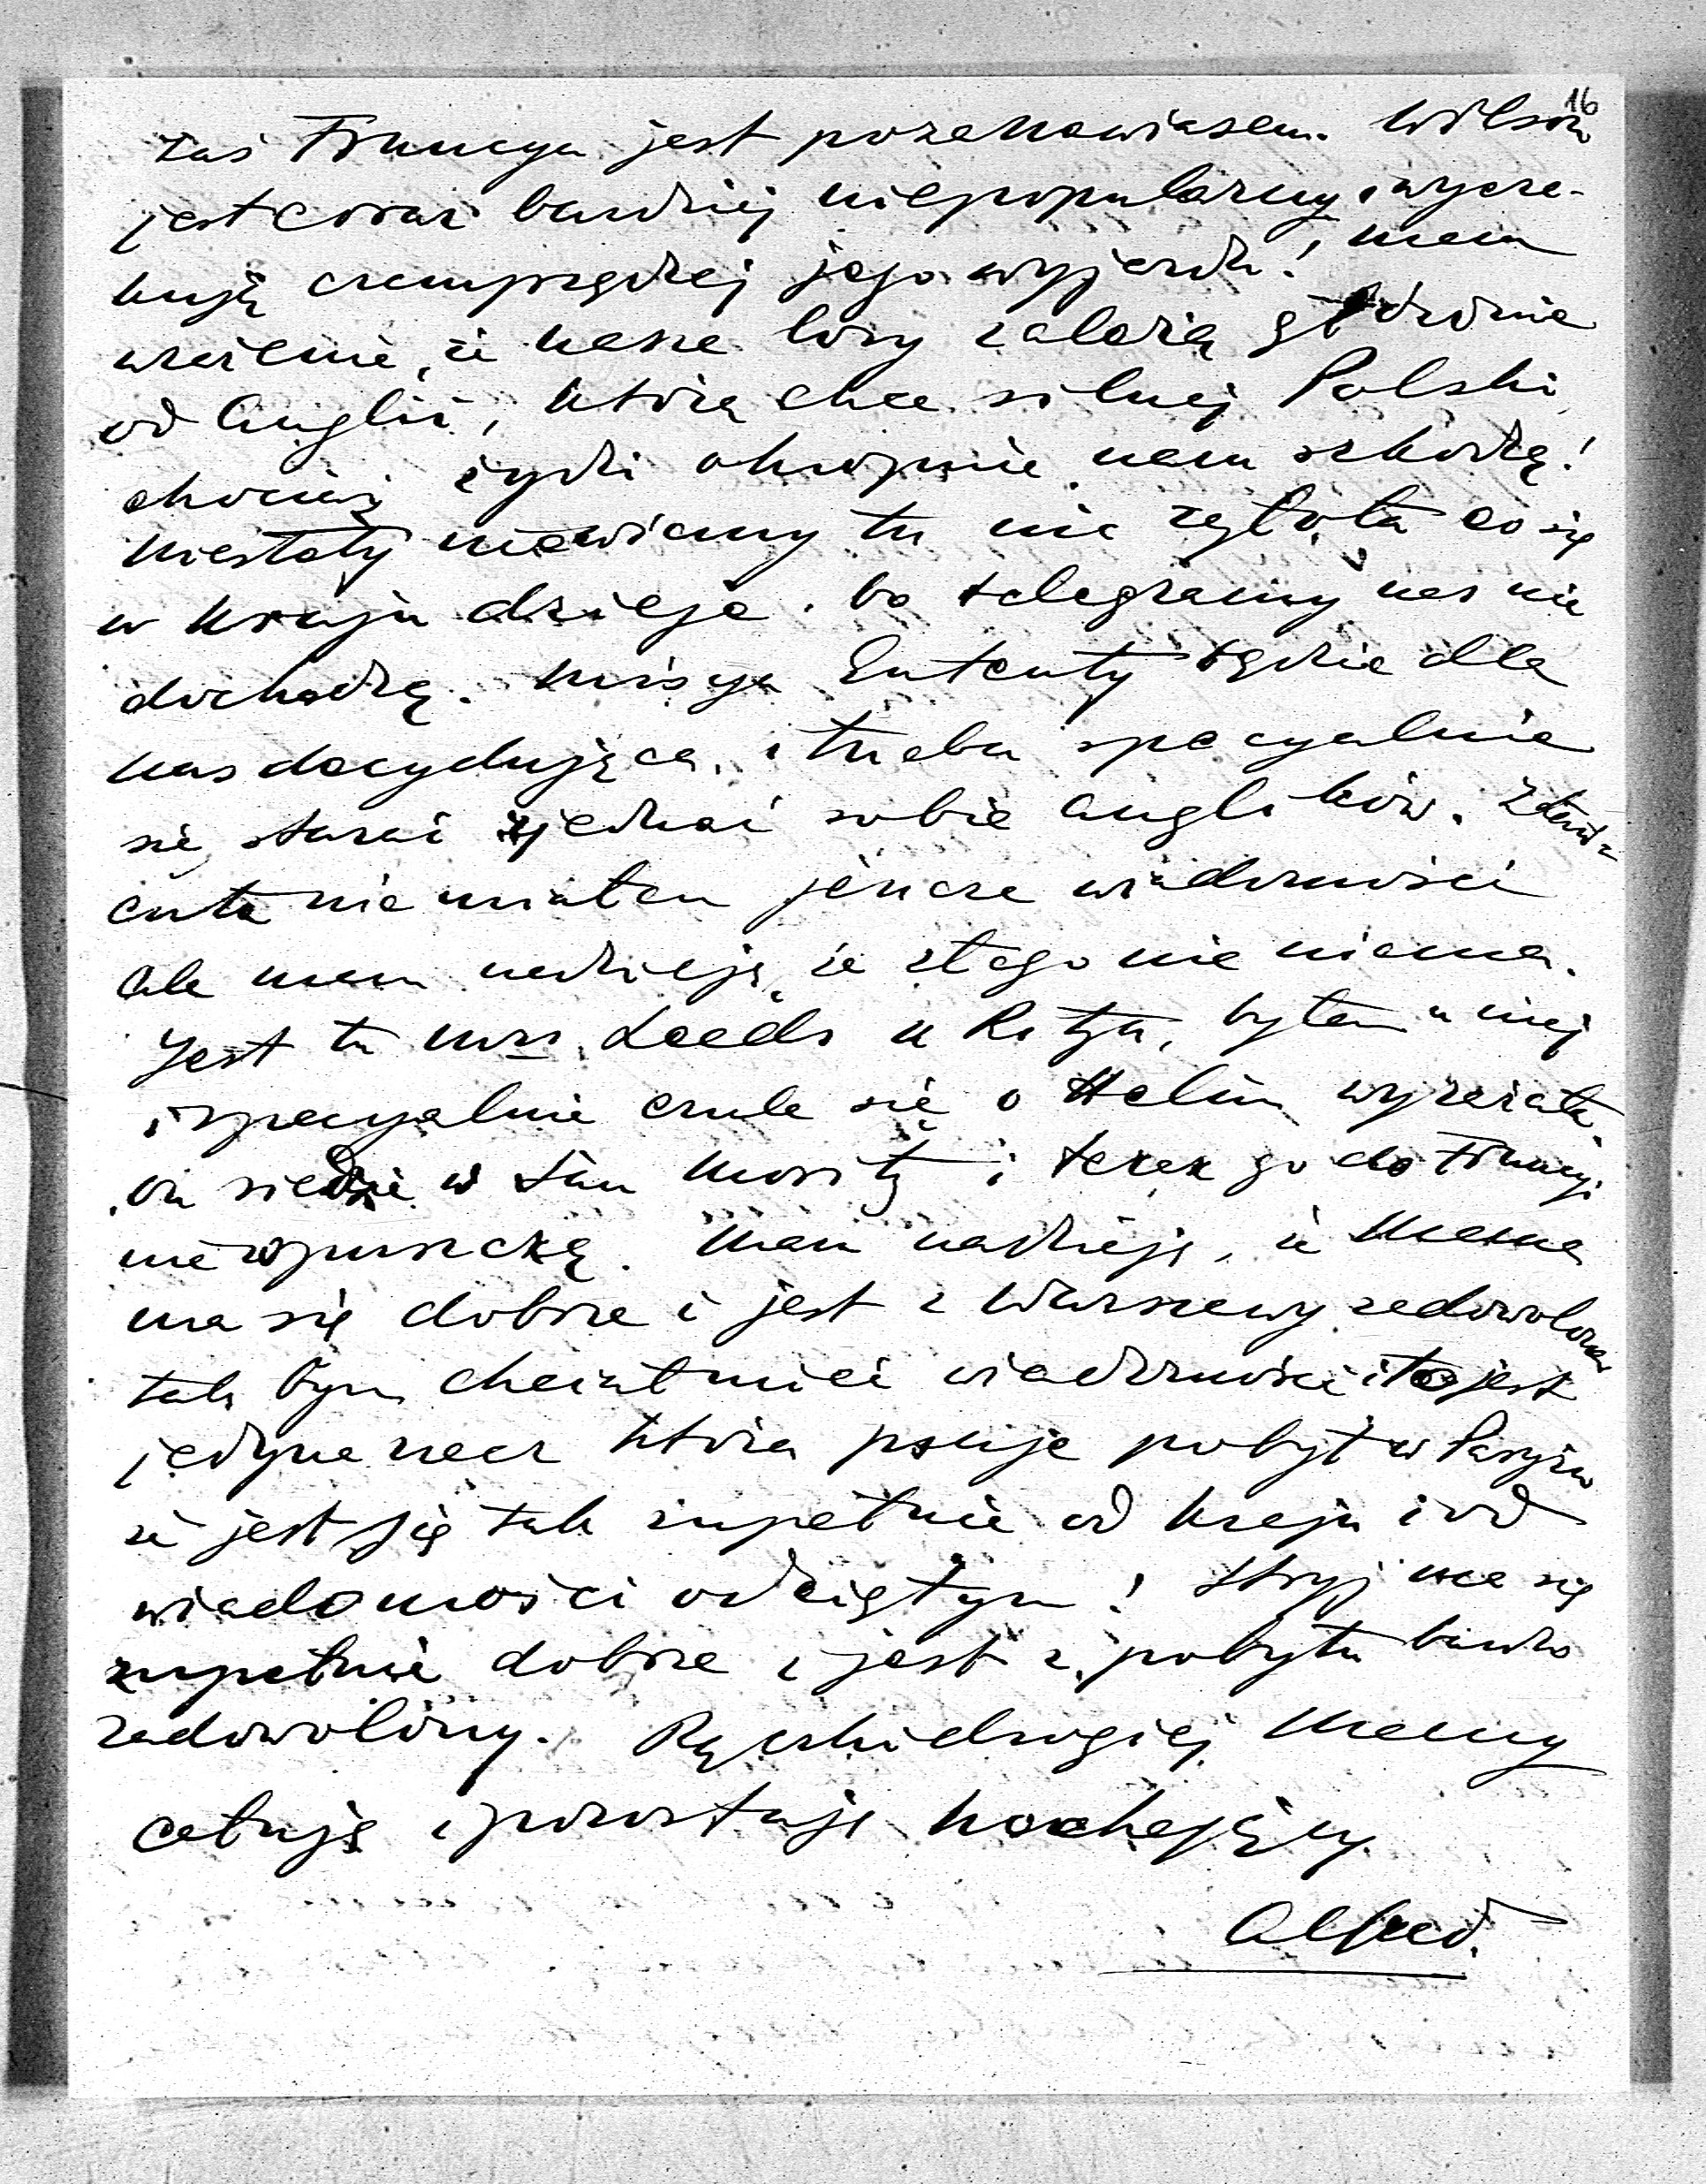 16
zaś Francya jest poza nawiasem. Wilson
jest coraz bardziej niepopularny i wycze-
kują czemprędzej jego wyjazdu! Mam
wrażenie, że nasze losy zależą głównie
od Anglii, która chce silnej Polski,
chociaż żydzi okropnie nam szkodzą!
Niestety niewiemy tu nic zgoła co się
w kraju dzieje. bo telegramy nas nie
dochodzą. Misya Ententy będzie dla
nas decydująca, i trzeba specyalnie
się starać zjednać sobie anglików. Z Łań-
cuta nie miałem jeszcze wiadomości
ale mam nadzieję, że złego nic niema.
Jest tu Mrs Leeds u Ritza, byłem u niej
i specyalnie czule się o Helin wyrażała.
On siedzi w San Moritz i teraz go do Francyi
nie wpuszczą. Mam nadzieję, że Mama
ma się dobrze i jest z Warszawy zadowolona
tak bym chciał mieć wiadomości i to jest
jedyna rzecz która psuje pobyt w Paryżu
że jest się tak zupełnie od kraju i od
wiadomości odciętym! Stryj ma się
zupełnie dobrze i jest z pobytu bardzo
zadowolony. Rączki drogiej Mamy
całuję i pozostaję kochający
Alfred.